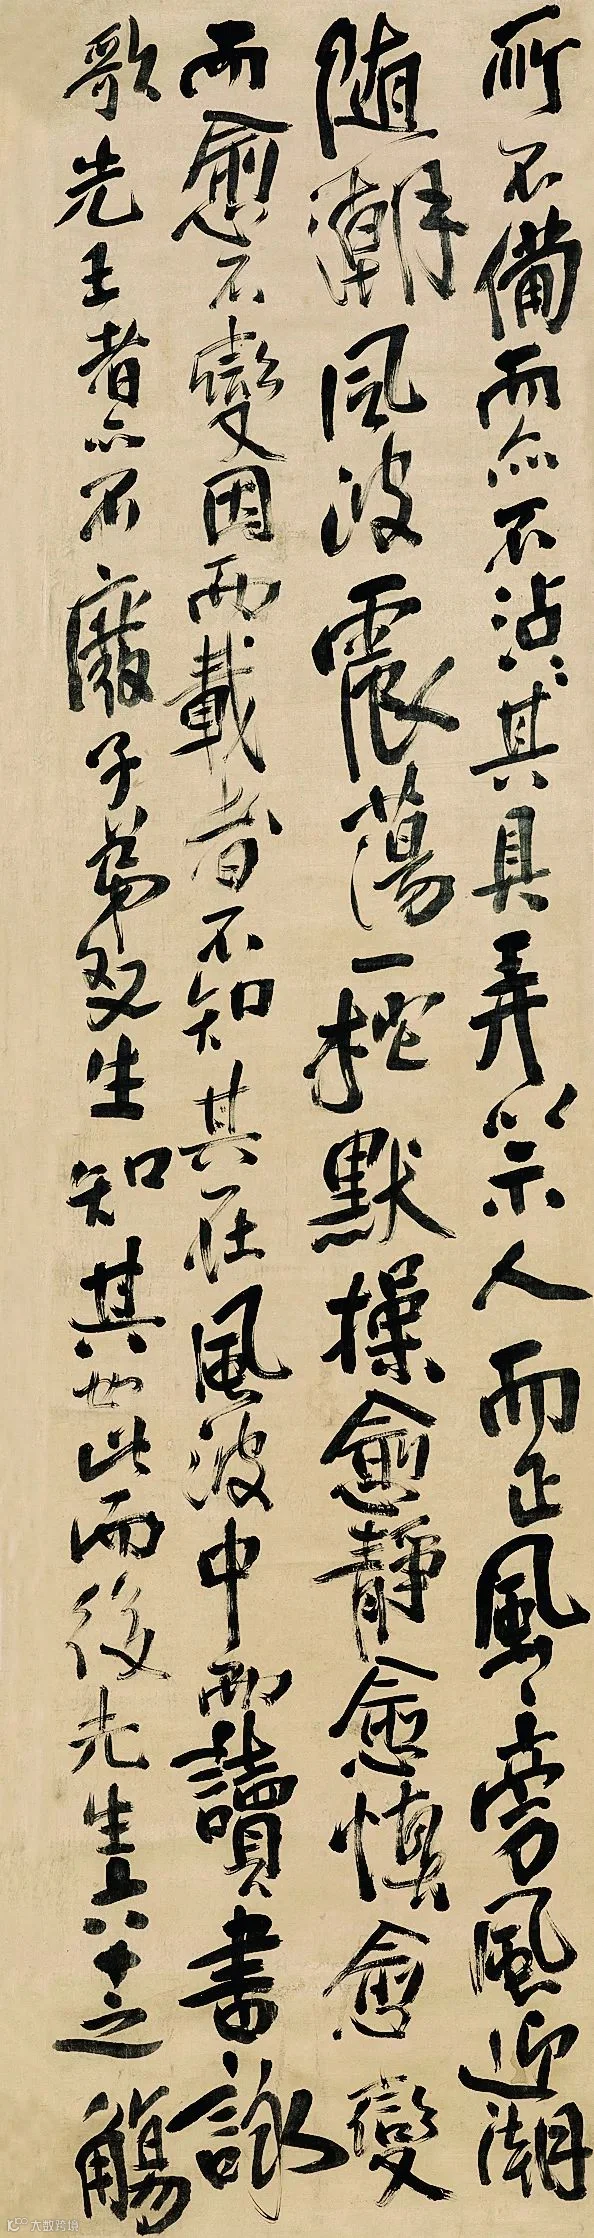 所不備而亦不沾沾其具弄以示人而正風旁風迎潮
随潮風波震蕩一柁默操愈靜愈慎愈變
而愈不變因而載者不知其在風波中而讀書詠
歌先王者亦不廢子弟友生知其如此而後先生六十之觴
大数跨境